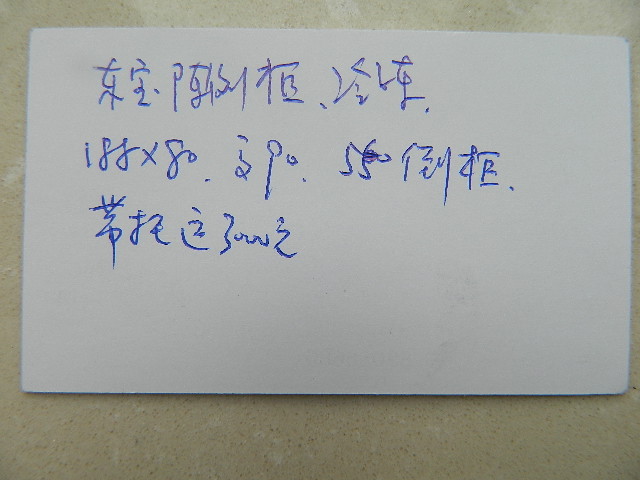 东宝.陈列柜、冷冻.
188×80.高90.550倒柜.
带托运3000元